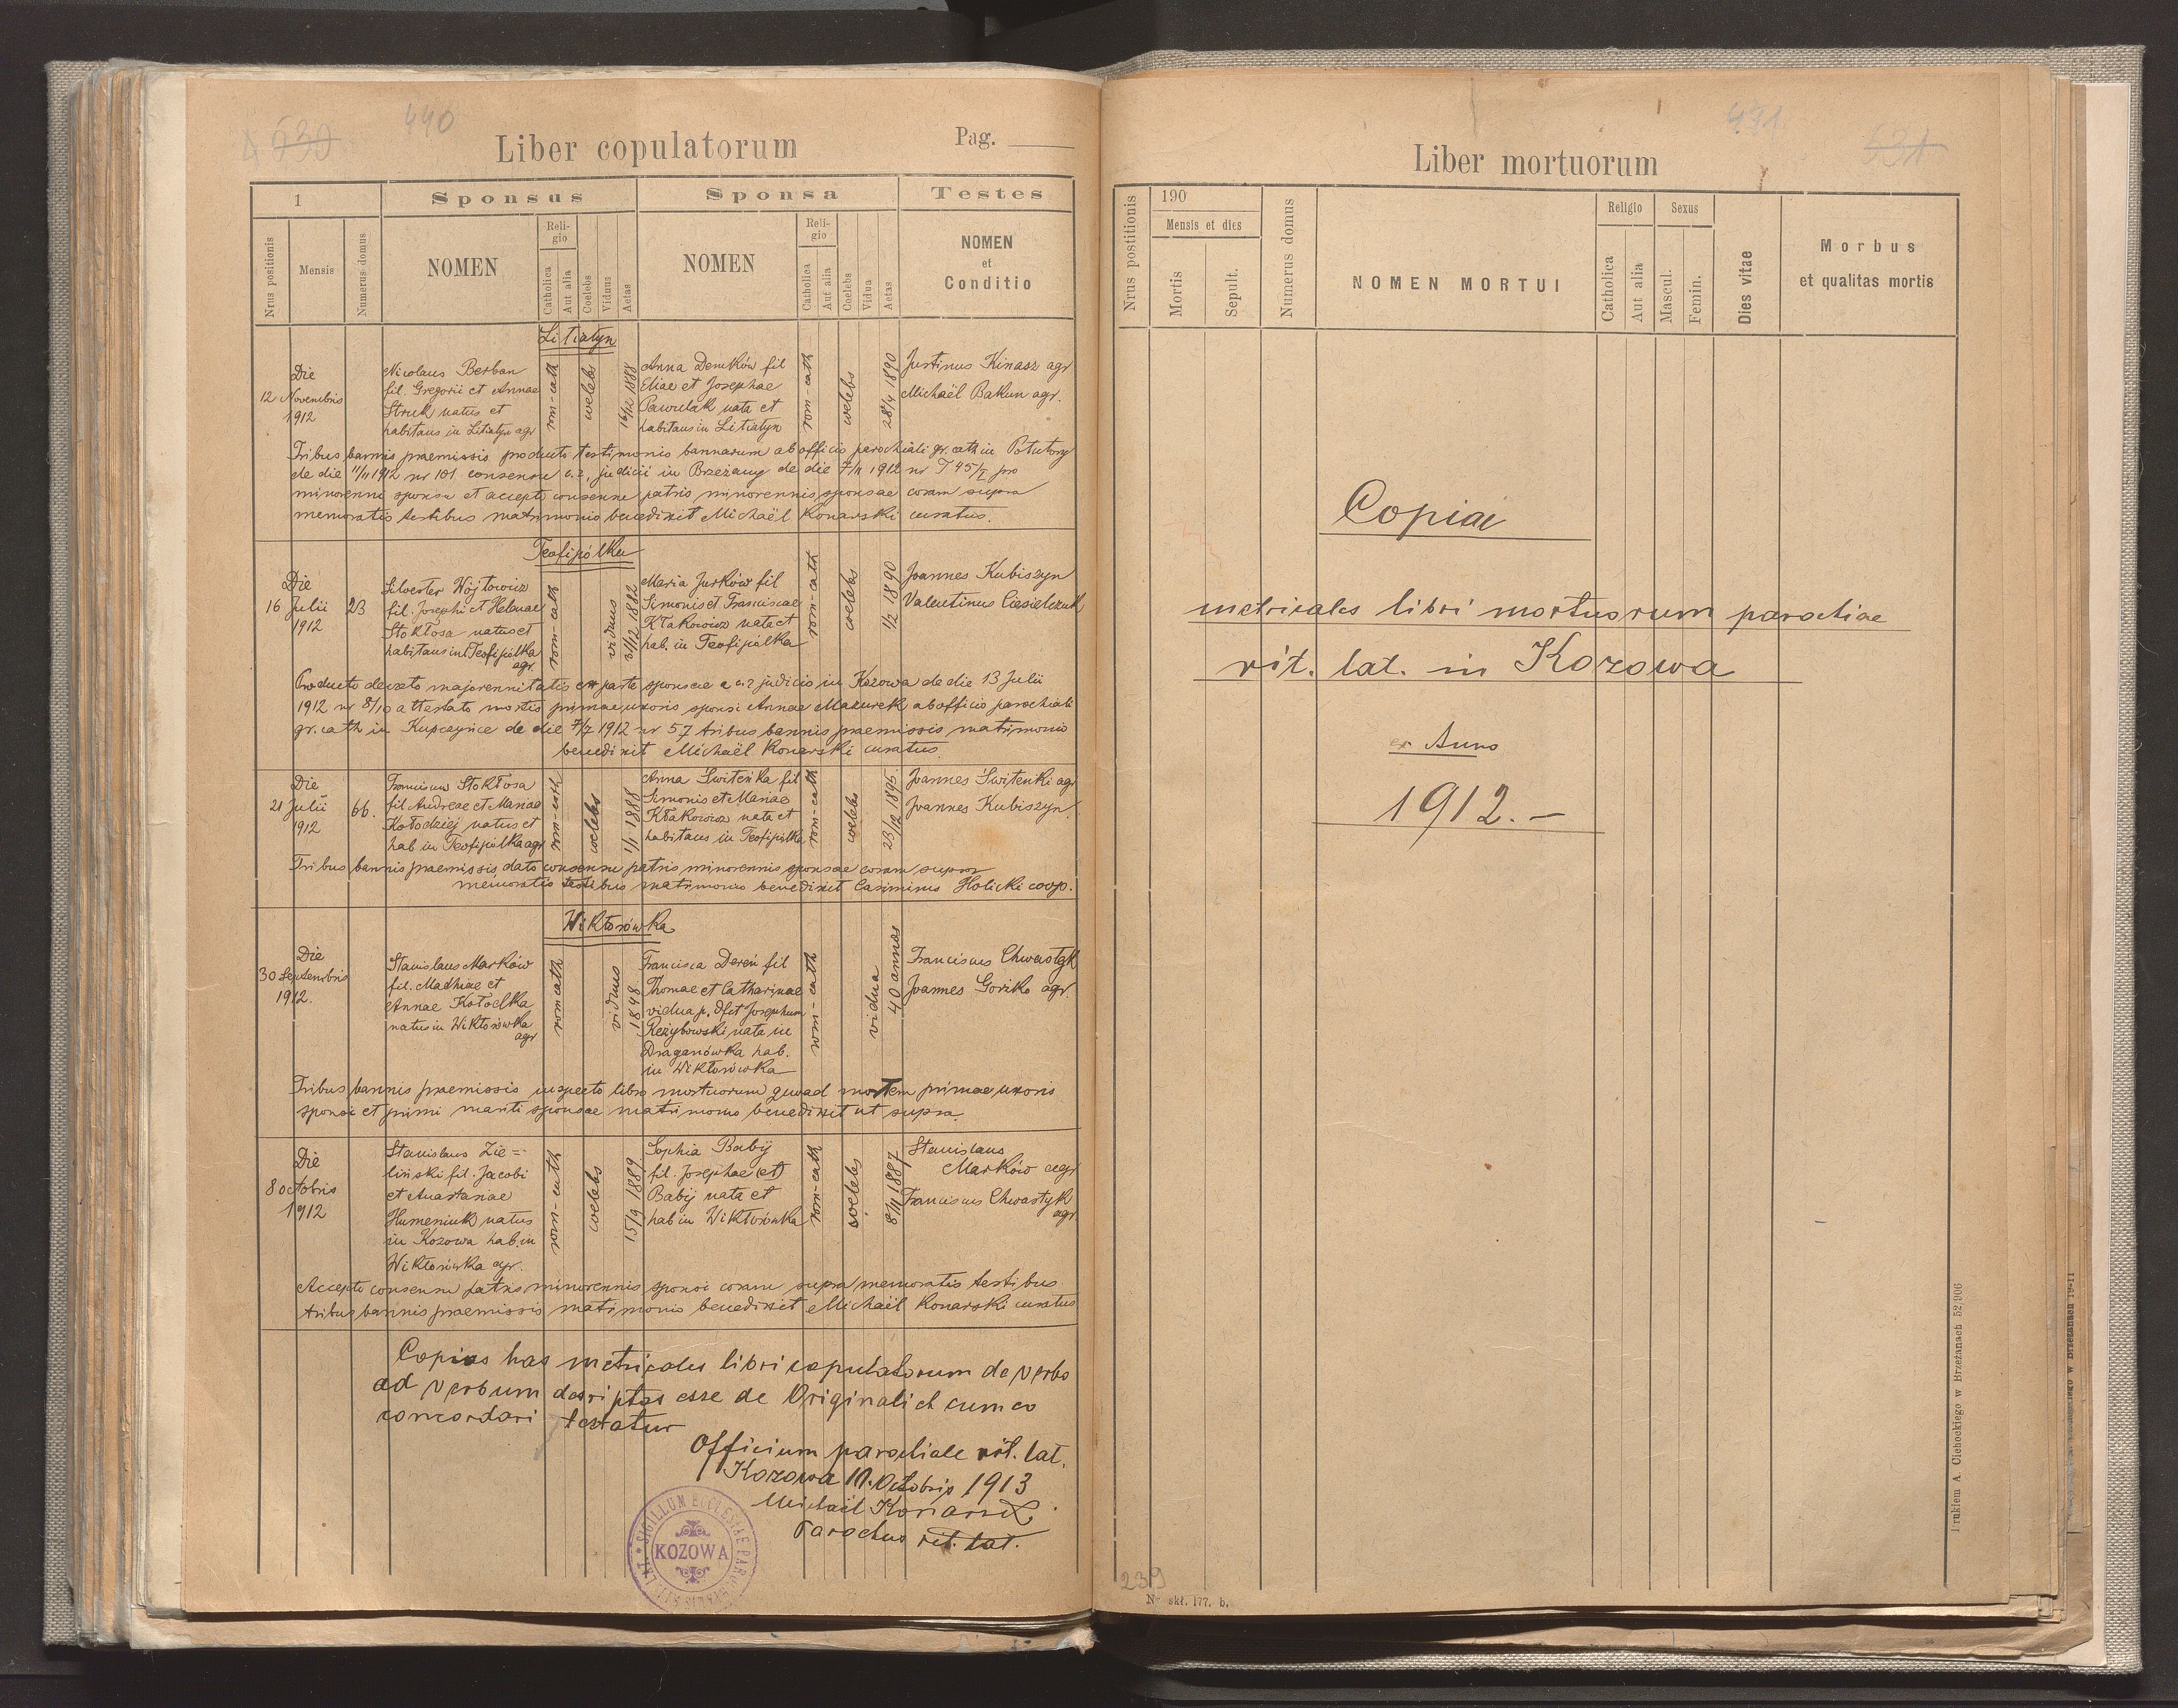 440
Liber copulatorum
Pag.
1
Sponsus
Sponsa
Testes
Nrus positionis
Mensis
Numerus domus
NOMEN
Reli-
gio
Catholica
Aut alia
Coelebs
Viduus
Aetas
NOMEN
Reli-
gio
Catholica
Aut alia
Coelebs
Vidua
Aetas
NOMEN
et
Conditio
Litiatyn
Die
12 Novembris
1912
Nicolaus Berban
fil. Gregorii et Annae
Struk natus et
habitans in Litiatyn agr
rom-cath
coelebs
16/12 1888
Anna Demków fil
Eliae et Josephae
Pawulak nata et
habitans in Litiatyn
rom-cath
coelebs
28/4 1890
Justinus Kinasz agr
Michaël Bakun agr.
Tribus bannis praemissis producto testimonio bannarum ab officio parochiali gr. cath in Potutory
de die 11/11 1912 nr 101 consensu c.r. judicii in Brzeżany de die 7/11 1912 nr T 45/I pro
minorenni sponsu et accepto consensu patris minorennis sponsae coram supra
memoratis testibus matrimonio benedixit Michaël Konarski curatus.
Teofipólka
Die
16 Julii
1912
23
Silvester Wójtowicz
fil. Josephi et Helenae
Stokłosa natus et
habitans in Teofipólka
agr.
rom-cath
viduus
31/12 1882
Maria Jurków fil
Simonis et Franciscae
Kłakowicz nata et
hab. in Teofipólka
rom-cath
coelebs
1/2 1890
Joannes Kubiszyn
Valentinus Ciesielczuk
Producto decreto majorennitatis ex parte sponsae a c.r judicio in Kozowa de die 13 Julii
1912 nr 8/10 attestato mortis primae uxoris sponsi Annae Mazurek ab officio parochiali
gr. cath in Kupczynce de die 7/7 1912 nr 57 tribus bannis praemissis matrimonio
benedixit Michaël Konarski curatus
Die
21 Julii
1912
66.
Franciscus Stokłosa
fil Andreae et Mariae
Kołodziej natus et
hab in Teofipólka agr
rom-cath
coelebs
1/1 1888
Anna Świteńka fil
Simonis et Mariae
Kłakowicz nata et
habitans in Teofipólka
rom-cath
coelebs
23/12 1895
Joannes Świteńki agr
Joannes Kubiszyn
Tribus bannis praemissis, dato consensu patris minorennis sponsae coram supra
memoratis testibus matrimonio benedixit Casimirus Holicki coop.
Wiktorówka
Die
30 Septembris
1912.
Stanislaus Marków
fil. Mathiae et
Annae Kołodka
natus in Wiktorówka
agr
rom cath
viduus
1848
Francisca Dereń fil
Thomae et Catharinae
vidua p. dfct Josephum
Rezybowski nata in
Draganówka hab.
in Wiktorówka
rom-cath
vidua
40 annos
Franciscus Chwastyk
Joannes Goriko agr.
Tribus bannis praemissis inspecto libro mortuorum quoad mortem primae uxoris
sponsi et primi mariti sponsae matrimonio benedixit ut supra
Die
8 octobris
1912
Stanislaus Zie=
liński fil. Jacobi
et Anastasiae
Humeniuk natus
in Kozowa hab. in
Wiktorówka agr.
rom-cath
coelebs
15/9 1889
Sophia Babij
fil. Josephae et
Babij nata et
hab in Wiktorówka
rom-cath
coelebs
8/11 1887
Stanislaus
Marków agr
Franciscus Chwastyk
agr
Accepto consensu patris minorennis sponsi coram supra memoratis testibus
tribus bannis praemissis matrimonio benedixit Michaël Konarski curatus
Copias has metricales libri copulatorum de verbo
ad verbum descriptas esse de Originali et cum eo
concordari testatur
Officium parochiale rit. lat.
Kozowa 10. Octobris 1913
Michaël Konarski
Parochus rit. lat.
SIGILLUM ECCLESIAE PAROCHIALIS RIT. LAT.
KOZOWA
Liber mortuorum
Nrus postitionis
190
Mensis et dies
Mortis
Sepult.
Numerus domus
NOMEN MORTUI
Religio
Catholica
Aut alia
Sexus
Mascul.
Femin.
Dies vitae
Morbus
et qualitas mortis
Copia
metricales libri mortuorum parochiae
rit. lat. in Kozowa
ex Anno
1912.-
239
Nr skł. 177. b.
Drukiem A. Cichockiego w Brzeżanach 52 906